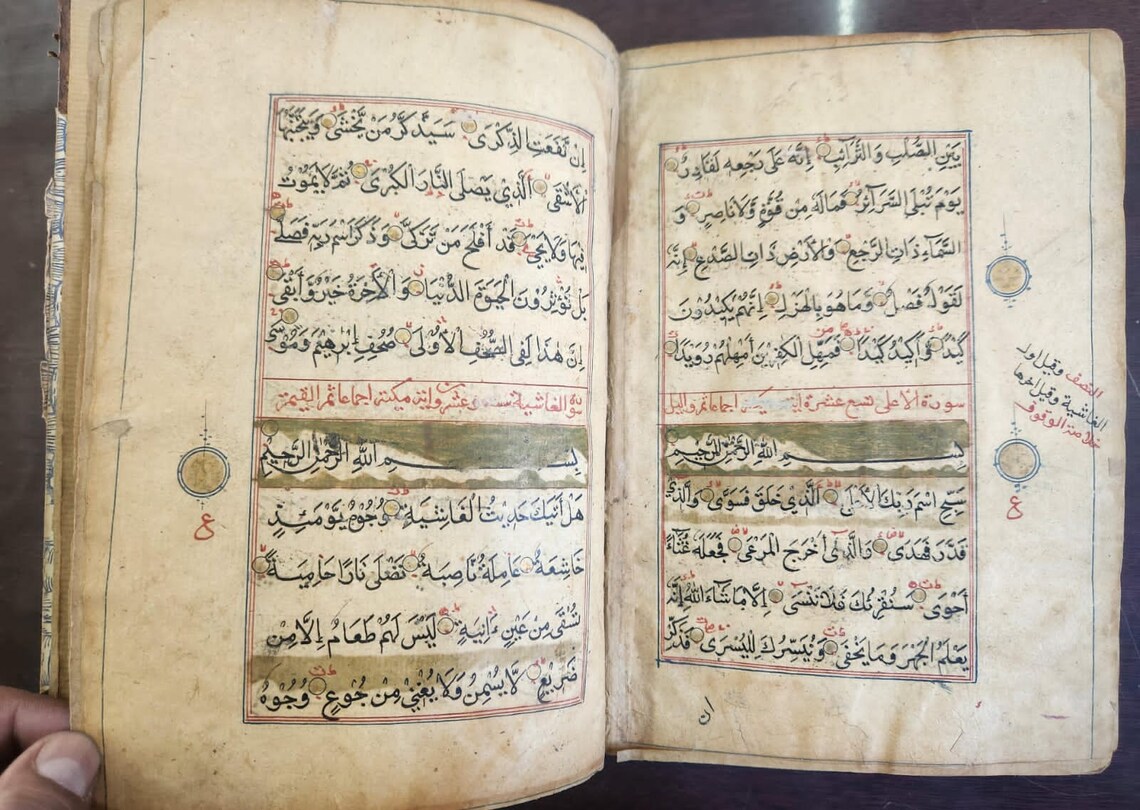 بَيْنِ الصُّلْبِ وَالتَّرَائِبِ اِنَّهُ عَلٰى رَجْعِهِ لَقَادِرٌ
يَوْمَ تُبْلَى السَّرَآئِرُ فَمَالَهُ مِنْ قُوَّةٍ وَلَا نَاصِرٍ وَ
السَّمَآءِ ذَاتِ الرَّجْعِ وَالْاَرْضِ ذَاتِ الصَّدْعِ اِنَّهُ
لَقَوْلٌ فَصْلٌ وَمَا هُوَ بِالْهَزْلِ اِنَّهُمْ يَكِيدُونَ
كَيْدًا وَاَكِيدُ كَيْدًا فَمَهِّلِ الْكٰفِرِينَ اَمْهِلْهُمْ رُوَيْدًا
سورة الاعلى تسع عشرة اية مكية اجماعا ثم والليل
بِسْمِ اللّٰهِ الرَّحْمٰنِ الرَّحِيمِ
سَبِّحِ اسْمَ رَبِّكَ الْاَعْلَى الَّذِي خَلَقَ فَسَوّٰى وَالَّذِي
قَدَّرَ فَهَدٰى وَالَّذِى اَخْرَجَ الْمَرْعٰى فَجَعَلَهُ غُثَآءً
اَحْوٰى سَنُقْرِئُكَ فَلَا تَنْسٰى اِلَّا مَا شَآءَ اللّٰهُ اِنَّهُ
يَعْلَمُ الْجَهْرَ وَمَا يَخْفٰى وَنُيَسِّرُكَ لِلْيُسْرٰى فَذَكِّرْ
ان
النصف وقيل اول
الغاشية وقيل اخرها
خلاصة الوقوف
ع
اِنْ نَفَعَتِ الذِّكْرٰى سَيَذَّكَّرُ مَنْ يَخْشٰى وَيَتَجَنَّبُهَا
الْاَشْقَى الَّذِي يَصْلَى النَّارَ الْكُبْرٰى ثُمَّ لَا يَمُوتُ
فِيهَا وَلَا يَحْيٰى قَدْ اَفْلَحَ مَنْ تَزَكّٰى وَذَكَرَ اسْمَ رَبِّهِ فَصَلّٰى
بَلْ تُؤْثِرُونَ الْحَيٰوةَ الدُّنْيَا وَالْاٰخِرَةُ خَيْرٌ وَاَبْقٰى
اِنَّ هٰذَا لَفِى الصُّحُفِ الْاُولٰى صُحُفِ اِبْرٰهِيمَ وَمُوسٰى
سورة الغاشية ست وعشرون اية مكية اجماعا ثم القيمة
بِسْمِ اللّٰهِ الرَّحْمٰنِ الرَّحِيمِ
هَلْ اَتٰيكَ حَدِيثُ الْغَاشِيَةِ وُجُوهٌ يَوْمَئِذٍ
خَاشِعَةٌ عَامِلَةٌ نَاصِبَةٌ تَصْلٰى نَارًا حَامِيَةً
تُسْقٰى مِنْ عَيْنٍ اٰنِيَةٍ لَيْسَ لَهُمْ طَعَامٌ اِلَّا مِنْ
ضَرِيعٍ لَا يُسْمِنُ وَلَا يُغْنِي مِنْ جُوعٍ وُجُوهٌ
ع